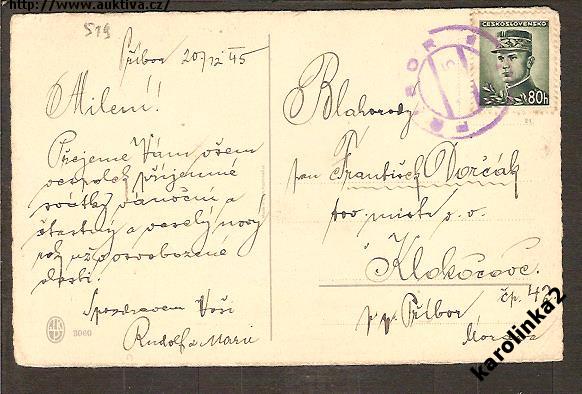 http://www.auktiva.cz/
519
Příbor 20/12 45
Milení!
Přejeme Vám všem
vespolek příjemné
svátky vánoční a
šťastný a veselý nový
rok už v osvobozené
vlasti.
S pozdravem Vaši
Rudolf a Marie
3060
ČESKOSLOVENSKO
80h
PŘÍBOR
Blahorody
pan František Dorčák
Klokočov
čp. 42
p. p. Příbor
Morava
karolinka2